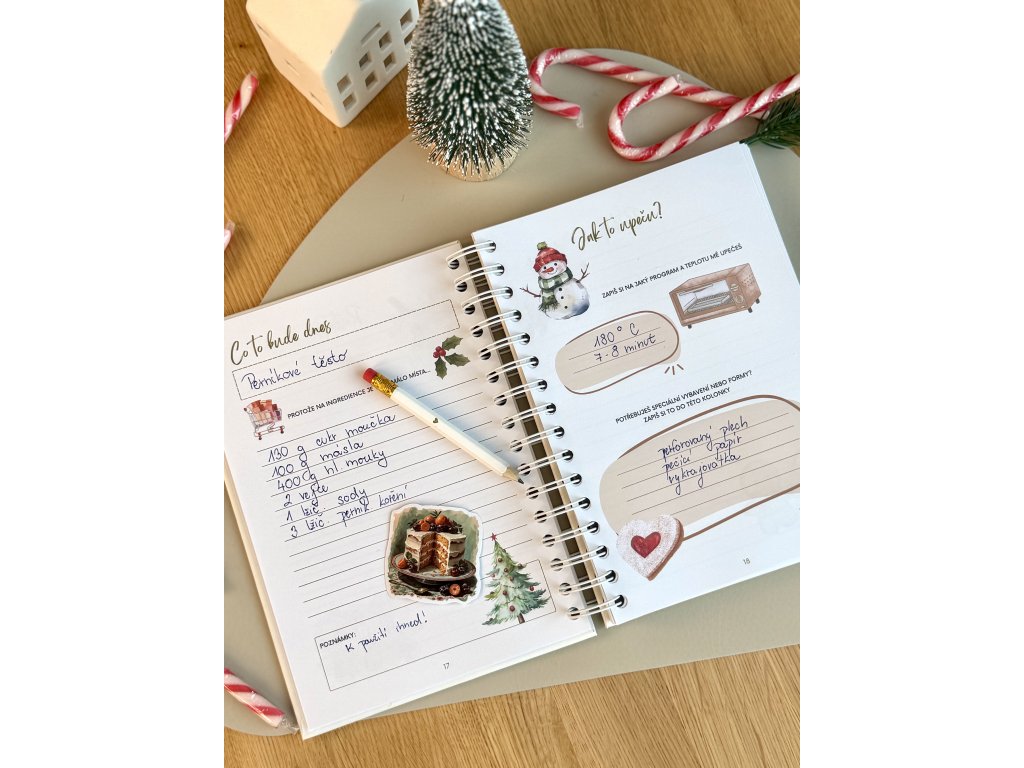 Co to bude dnes
Perníkové těsto
PROTOŽE NA INGREDIENCE JE MÁLO MÍSTA...
130 g cukr moučka
100 g másla
400 g hl. mouky
2 vejce
1 lžíc sody
3 lžíc perník koření
POZNÁMKY:
K použití ihned!
17
Jak to upeču?
ZAPIŠ SI NA JAKÝ PROGRAM A TEPLOTU MĚ UPEČEŠ
180° C
7-8 minut
POTŘEBUJEŠ SPECIÁLNÍ VYBAVENÍ NEBO FORMY?
ZAPIŠ SI TO DO TÉTO KOLONKY
perforovaný plech
pečící papír
vykrajovátka
18